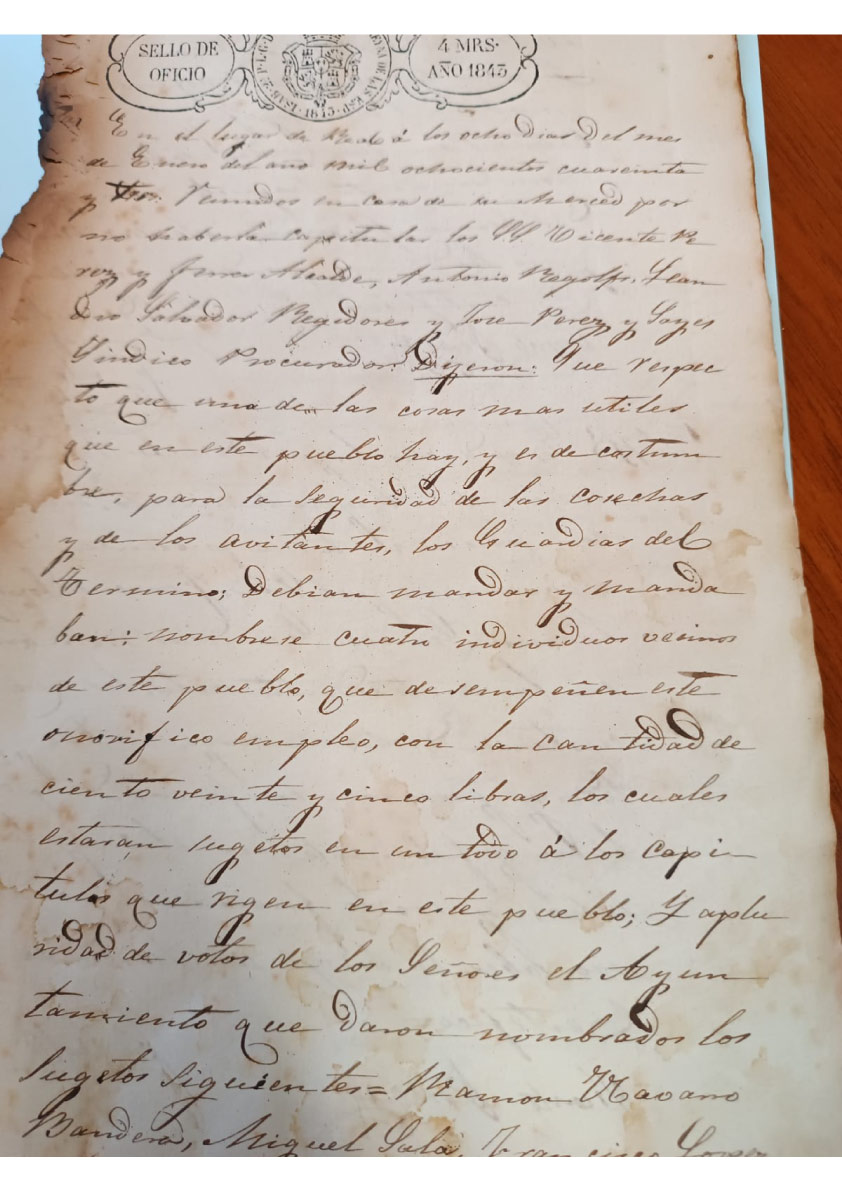 SELLO DE
OFICIO
4 MRS.
AÑO 1843
En el lugar de á los ocho dias del mes
de Enero del año mil ochocientos cuarenta
y tres: Reunidos en casa de su Merced por
no haberla capitular los SS Vicente Pe
rez y Alcalde, Antonio
Salvador Regidores y Jose Perez y
Sindico Procurador: Dijeron: Que respec
to que una de las cosas mas utiles
que en este pueblo hay, y es de costum
bre, para la seguridad de las cosechas
y de los avitantes, los Guardias del
Termino; Debian mandar y manda
ban: nombrese cuatro individuos vecinos
de este pueblo, que desempeñen este
onorifico empleo, con la cantidad de
ciento veinte y cinco libras, los cuales
estaran sugetos en un todo á los capi-
tulos que rigen en este pueblo; Y aplu
ridad de votos de los Señores el Ayun
tamiento que daron nombrados los
sugetos siguientes= Ramon Navarro
Bandera, Miguel Sala, Francisco Lopez